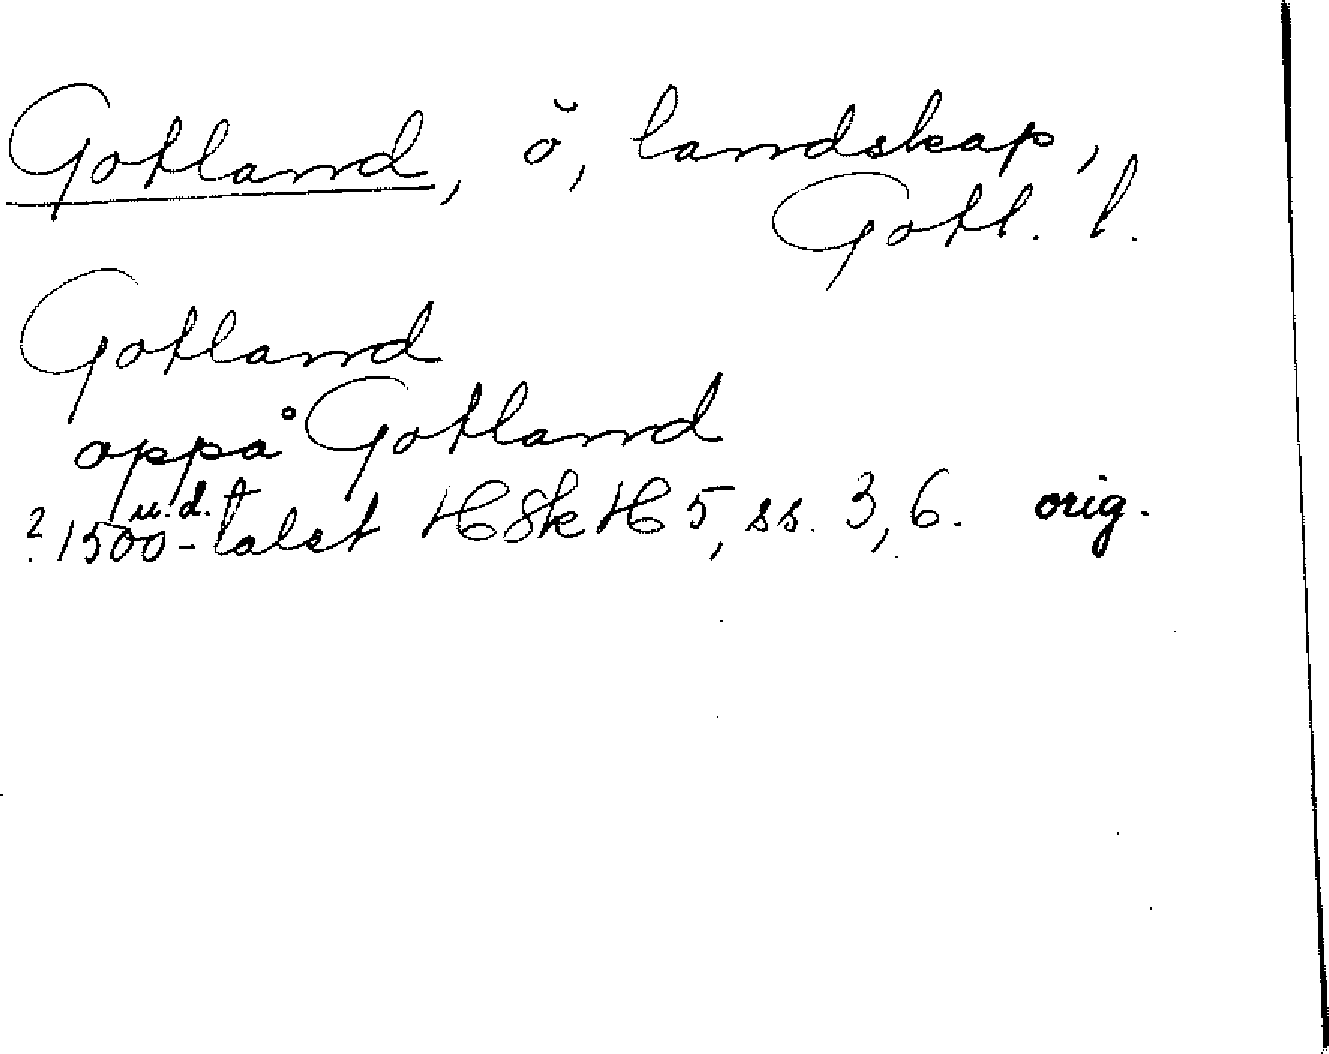 Gotland, ö, landskap,
Gotl. l.
Gotland
oppå Gotland
u.d.
? 1500-talet HSkH 5, ss. 3, 6. orig.